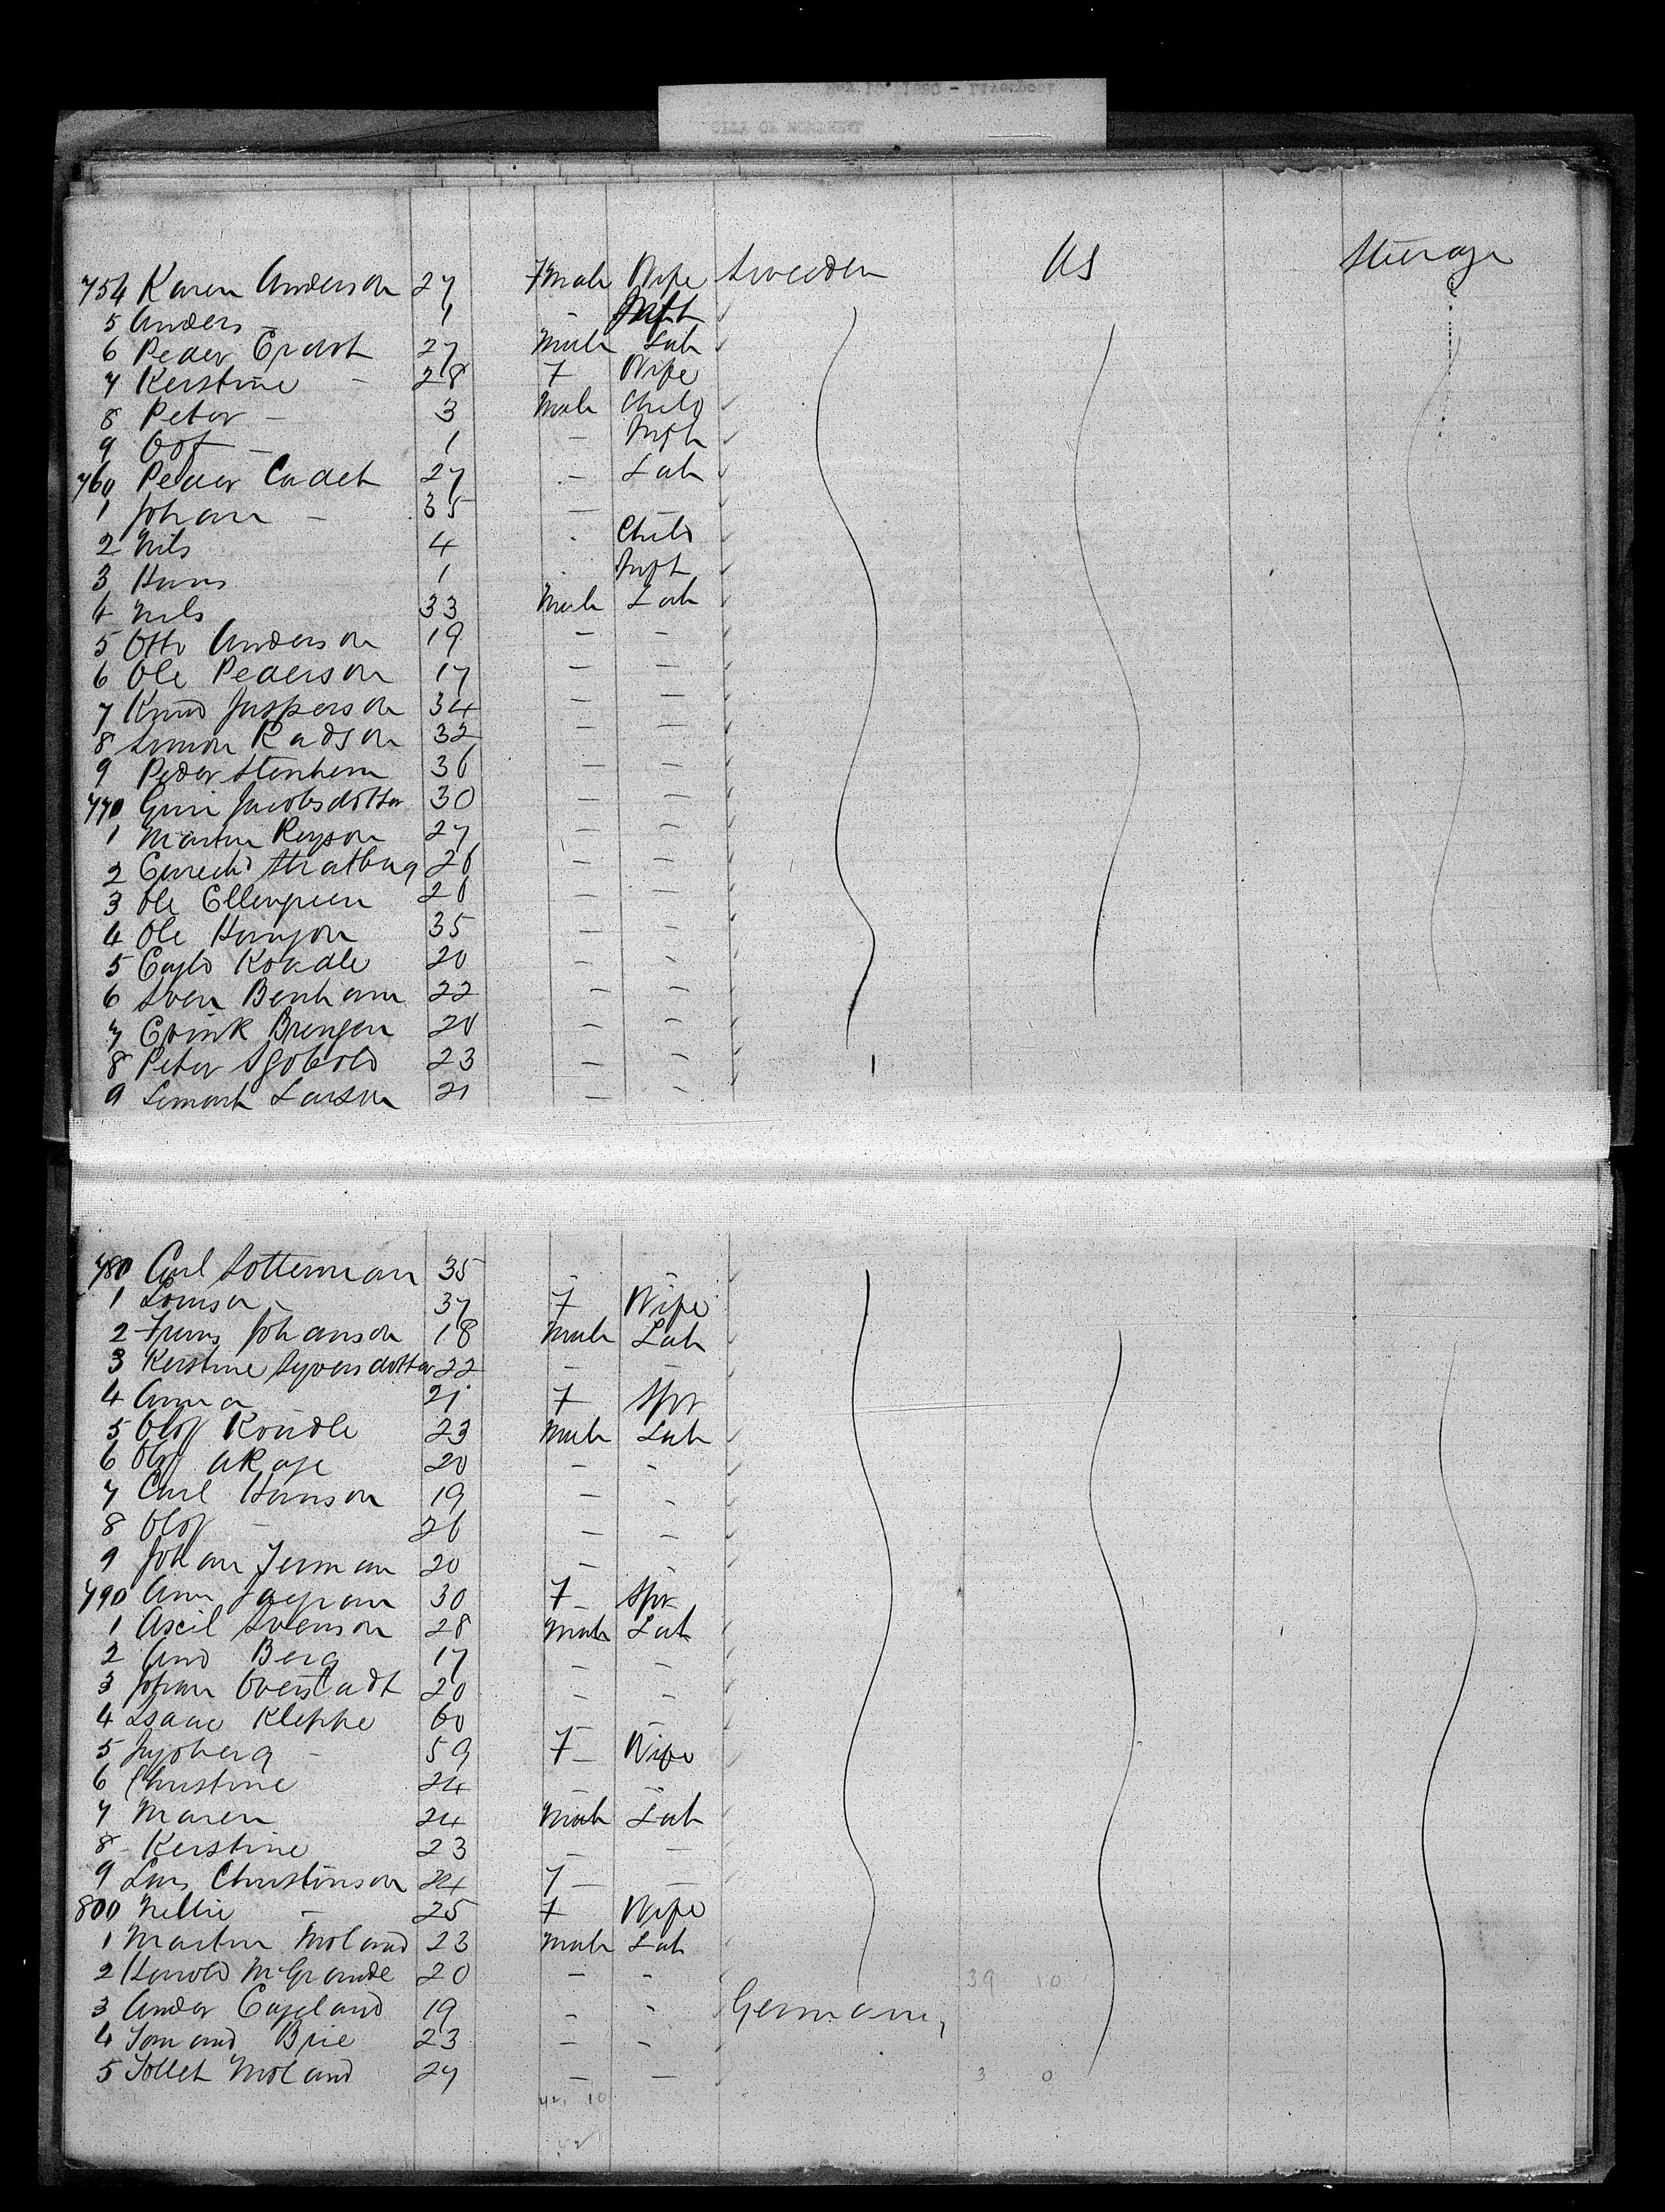 754 Karen Anderson 27 Fmale Wife Sweeden US Steerage
5 Anders - 1 - Inft
6 Peder Erdst 27 Male Lab
7 Kerstine - 28 F Wife
8 Peter - 3 Male Child
9 Oof - 1 - Inft
760 Peder Cadet 27 - Lab
1 Johan - 35 - -
2 Nils 4 Child
3 Hans 1 Inft
4 Nils 33 Male Lab
5 Otto Anderson 19 - -
6 Ole Pederson 17 - -
7 Knud Jusperson 34 - -
8 Simon Radson 32 - -
9 Peder Stenhem 36 - -
770 Guri Jacobsdotter 30 - -
1 Martin Reyson 27 - -
2 Stratburg 26 - -
3 Ole Ellengreen 26 - -
4 Ole Hanson 35 - -
5 Kondle 20 - -
6 Sven Benham 22 - -
7 Brengen 20 - -
8 Peter 23 - -
9 Lemart Larson 21 - -
780 Carl Sotterman 35 - -
1 Louisa - 37 F Wife
2 Frans Johanson 18 Male Lab
3 Kerstine Syversdotter 22 - -
4 Anna 21 F Spr
5 Olof Kondle 23 Male Lab
6 Olof 20 - -
7 Carl Hanson 19 - -
8 Olof - 26 - -
9 Johan Jerman 20 - -
790 Ann 30 F Spr
1 Axcil Svenson 28 Male Lab
2 And Berg 17 - -
3 Johan Overstadt 20 - -
4 Isaac Kleppe 60 - -
5 - 59 F Wife
6 Christine 24 - -
7 Maren 24 Male Lab
8 Kerstine 23 - -
9 Lars Christinson 24 F - -
800 Nellie - 25 F Wife
1 Martin Moland 23 Male Lab
2 Harold McGrande 20 - - 39 10
3 Ander Egeland 19 - - Germany
4 Brie 23 - -
5 Tollet Moland 27 - - 3 0